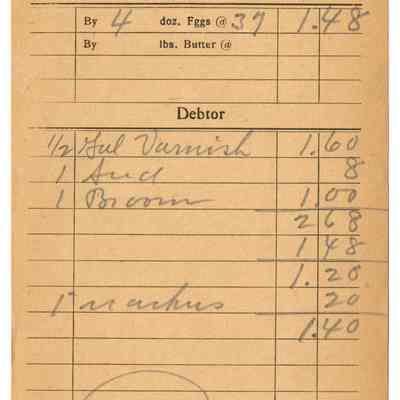 By 4 doz. Eggs @ 37 1.48
By lbs. Butter @
Debtor
1/2 Gal Varnish 1.60
1 8
1 Broom 1.00
2 68
1 48
1.20
1 20
1.40